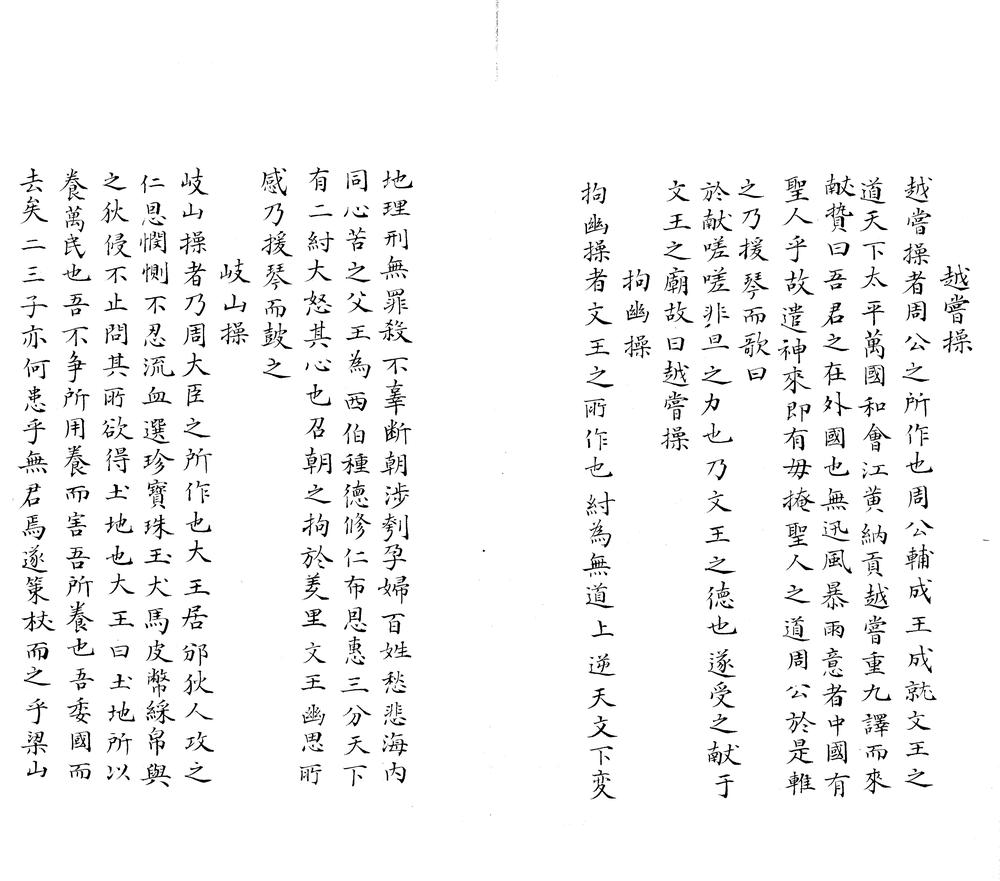 越嘗操
越嘗操者周公之所作也周公輔成王成就文王之
道天下太平萬國和會江黄納貢越嘗重九譯而來
献贄曰吾君之在外國也無迅風暴雨意者中國有
聖人乎故遣神來即有毋掩聖人之道周公於是雅
之乃援琴而歌曰
於献嗟嗟非旦之力也乃文王之德也遂受之献于
文王之廟故曰越嘗操
拘幽操
拘幽操者文王之所作也紂為無道上逆天文下変
地理刑無罪殺不辜断朝涉刳孕婦百姓愁悲海内
同心苦之父王為西伯種德修仁布恩惠三分天下
有二紂大怒其心也召朝之拘於羑里文王幽思所
感乃援琴而鼓之
岐山操
岐山操者乃周大臣之所作也大王居邠狄人攻之
仁恩惻惻不忍流血選珍寶珠玉犬馬皮幣綵帛與
之狄侵不止問其所欲得土地也大王曰土地所以
養萬民也吾不争所用養而害吾所養也吾委國而
去矣二三子亦何患乎無君焉遂策杖而之乎梁山